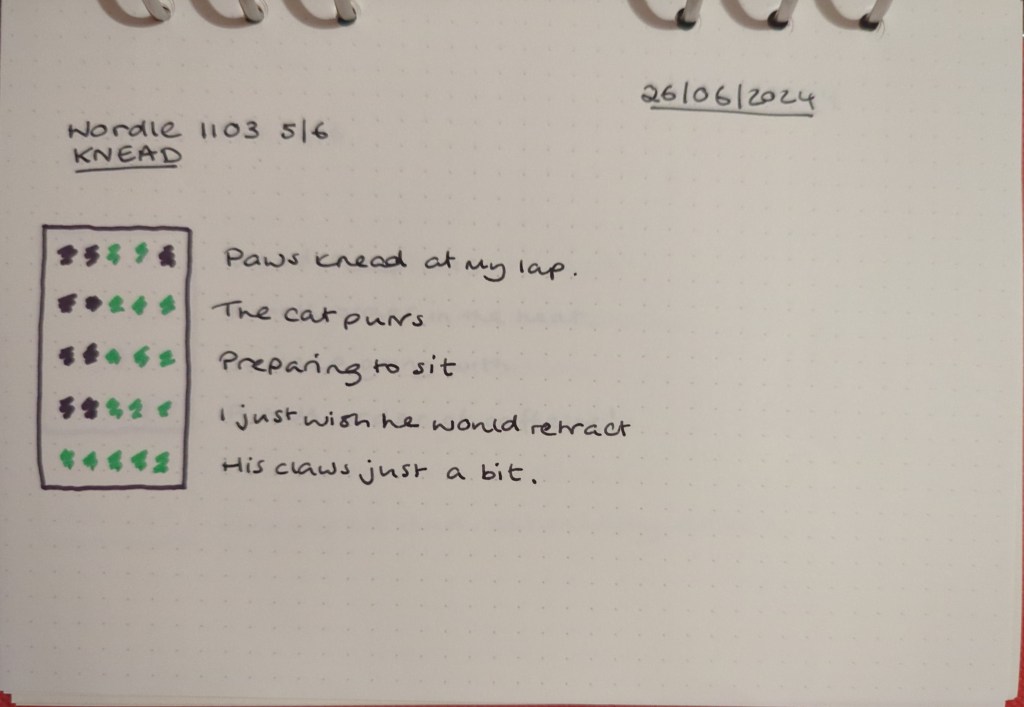 26/06/2024
Wordle 1103 5/6
KNEAD
Paws knead at my lap.
The cat purrs
Preparing to sit
I just wish he would retract
His claws just a bit.